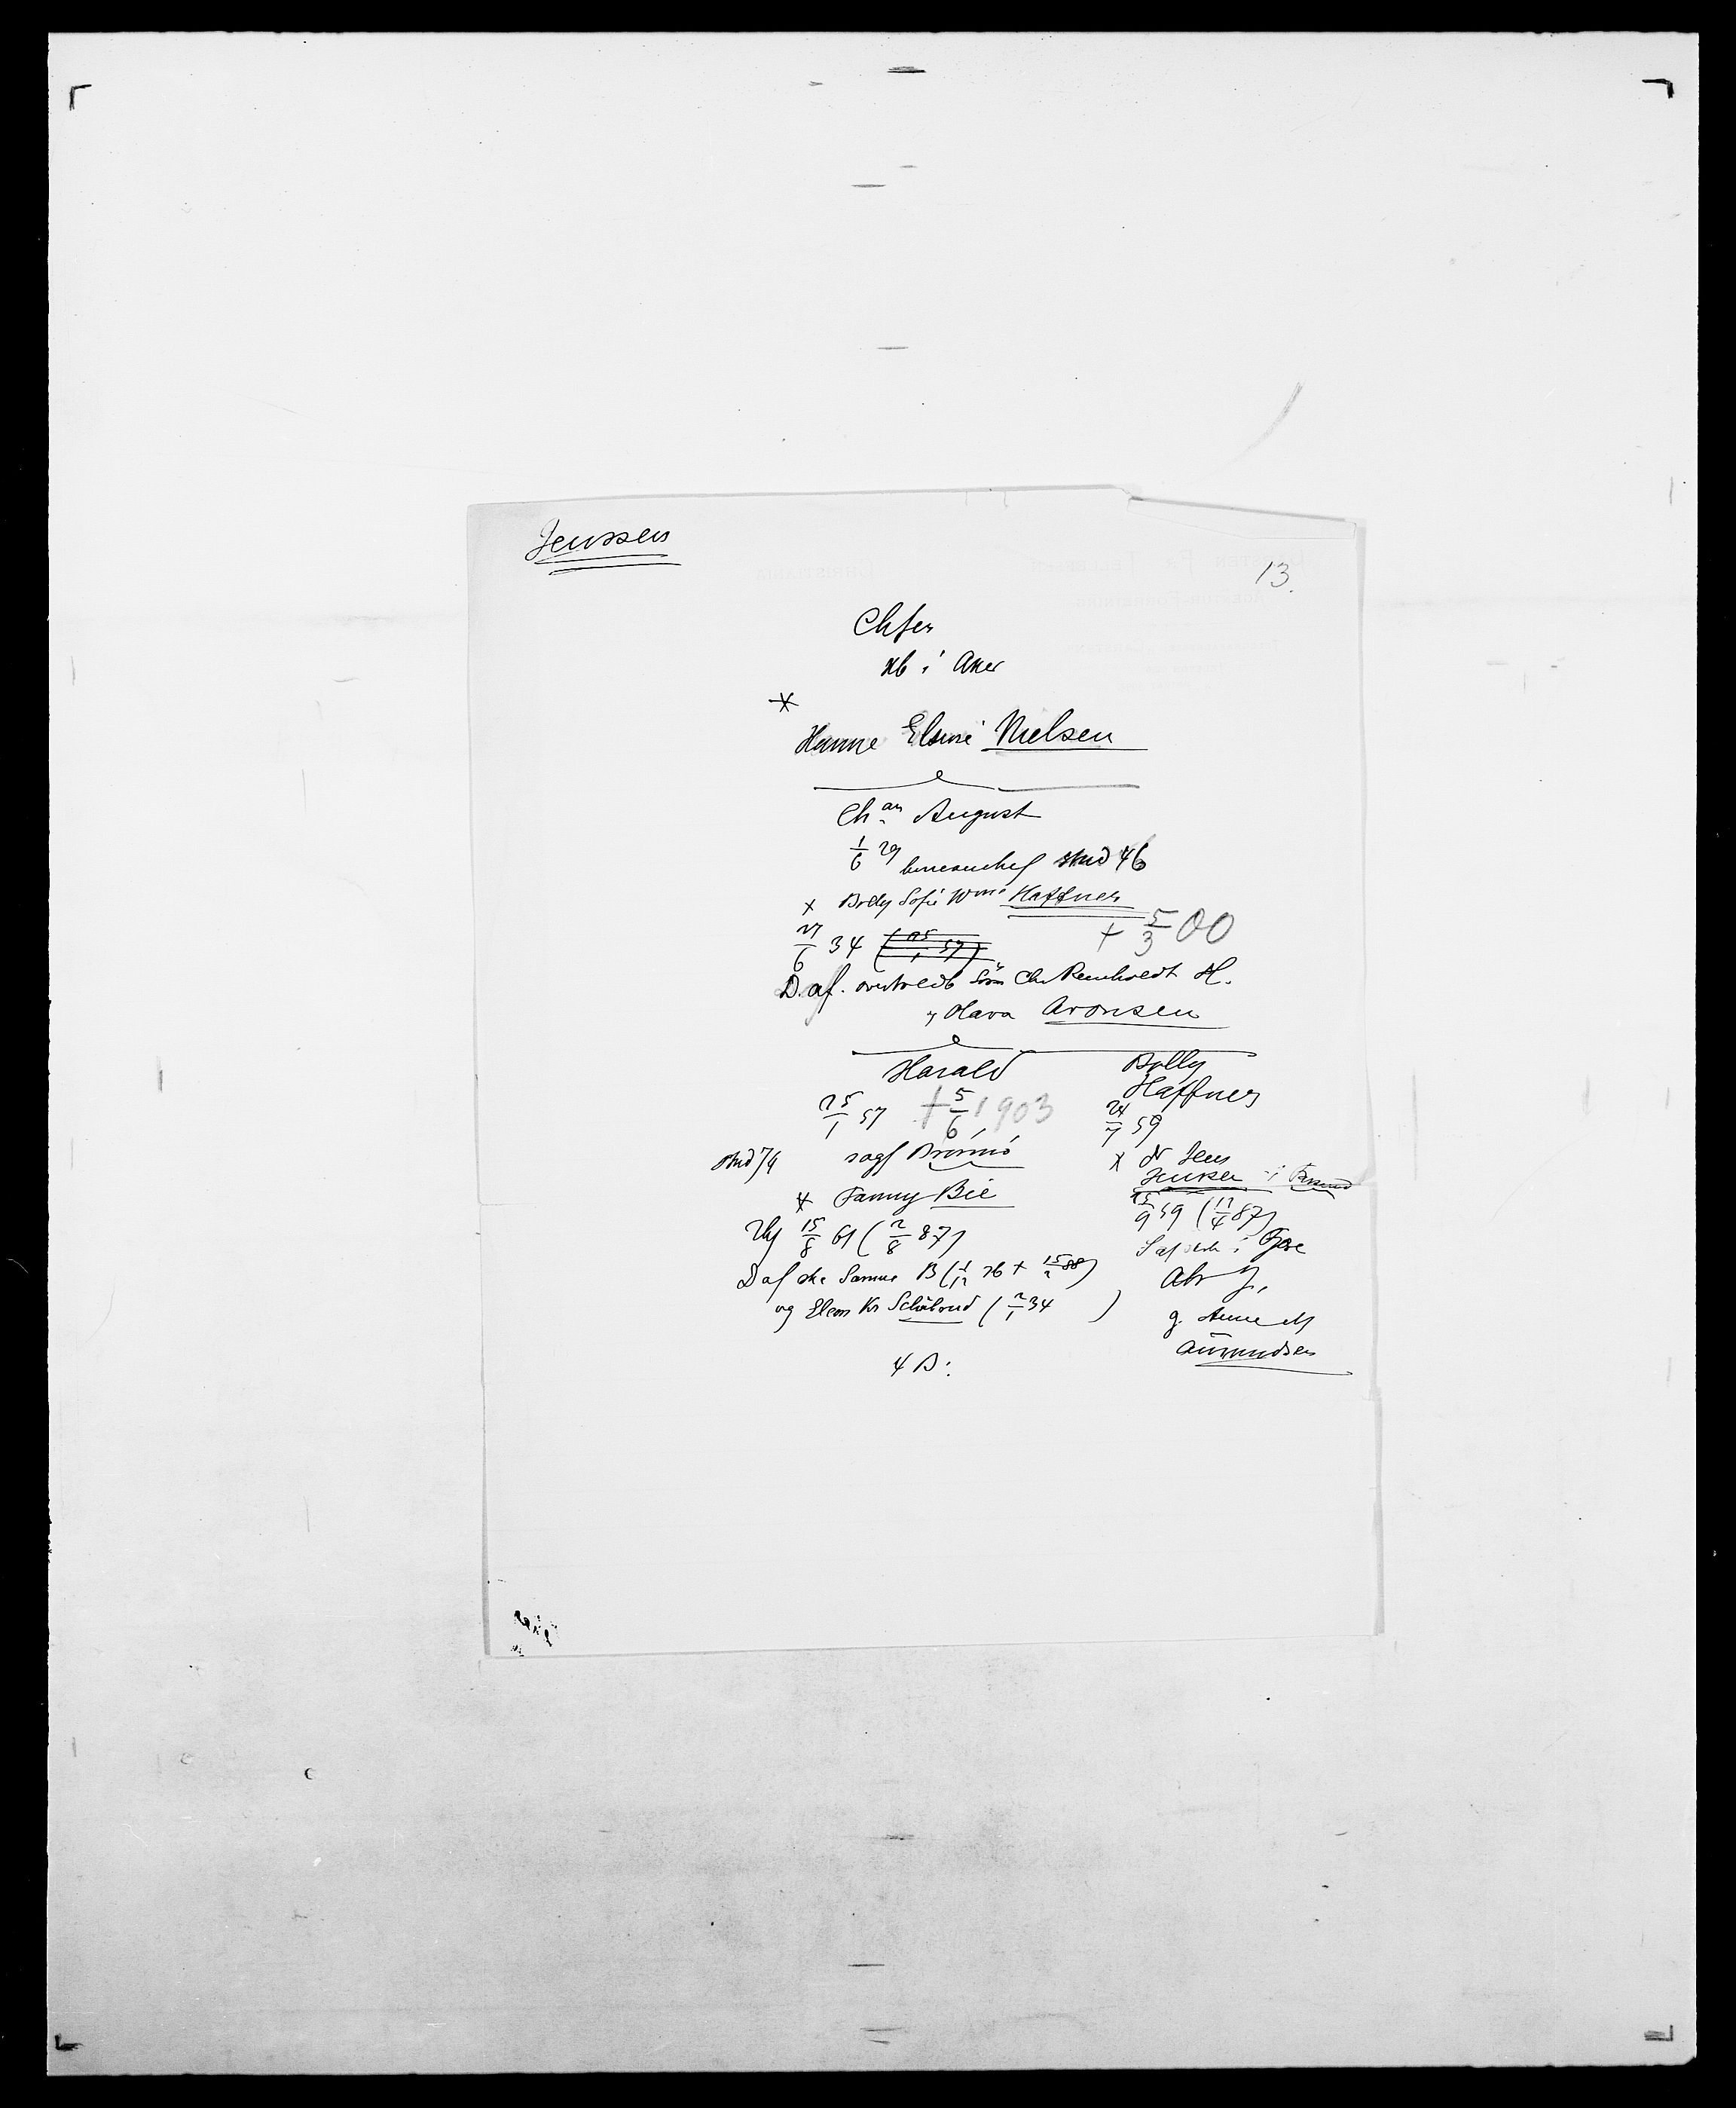 Jenssen
13.
Chfer
kb i Aker
x
Hanne Elsine Nielsen
Ch an August
1/6 29 bureauchef stud 46
x Bolly Sofie Wme Haffner
27/6 34 (25/1 57) + 5/3 00
D. af. overtoldb Sören Chr Reinholdt H.
og Hava Aronsen
Harald
25/1 57 + 5/6 1903
stud 74 sagf Brönnö
x Fanny Bie
15/8 61 (2/8 87)
D af Hanna B (1/12 26 + 15/2 88)
og Elen Kr Schölrud (2/1 34 )
4 B:
Bolly
Haffner
24/7 59
x Dr Jens
Jenssen i
15/9 59 (12/4 87)
S af i
Abr J,
g. Anne M
Aamundsen